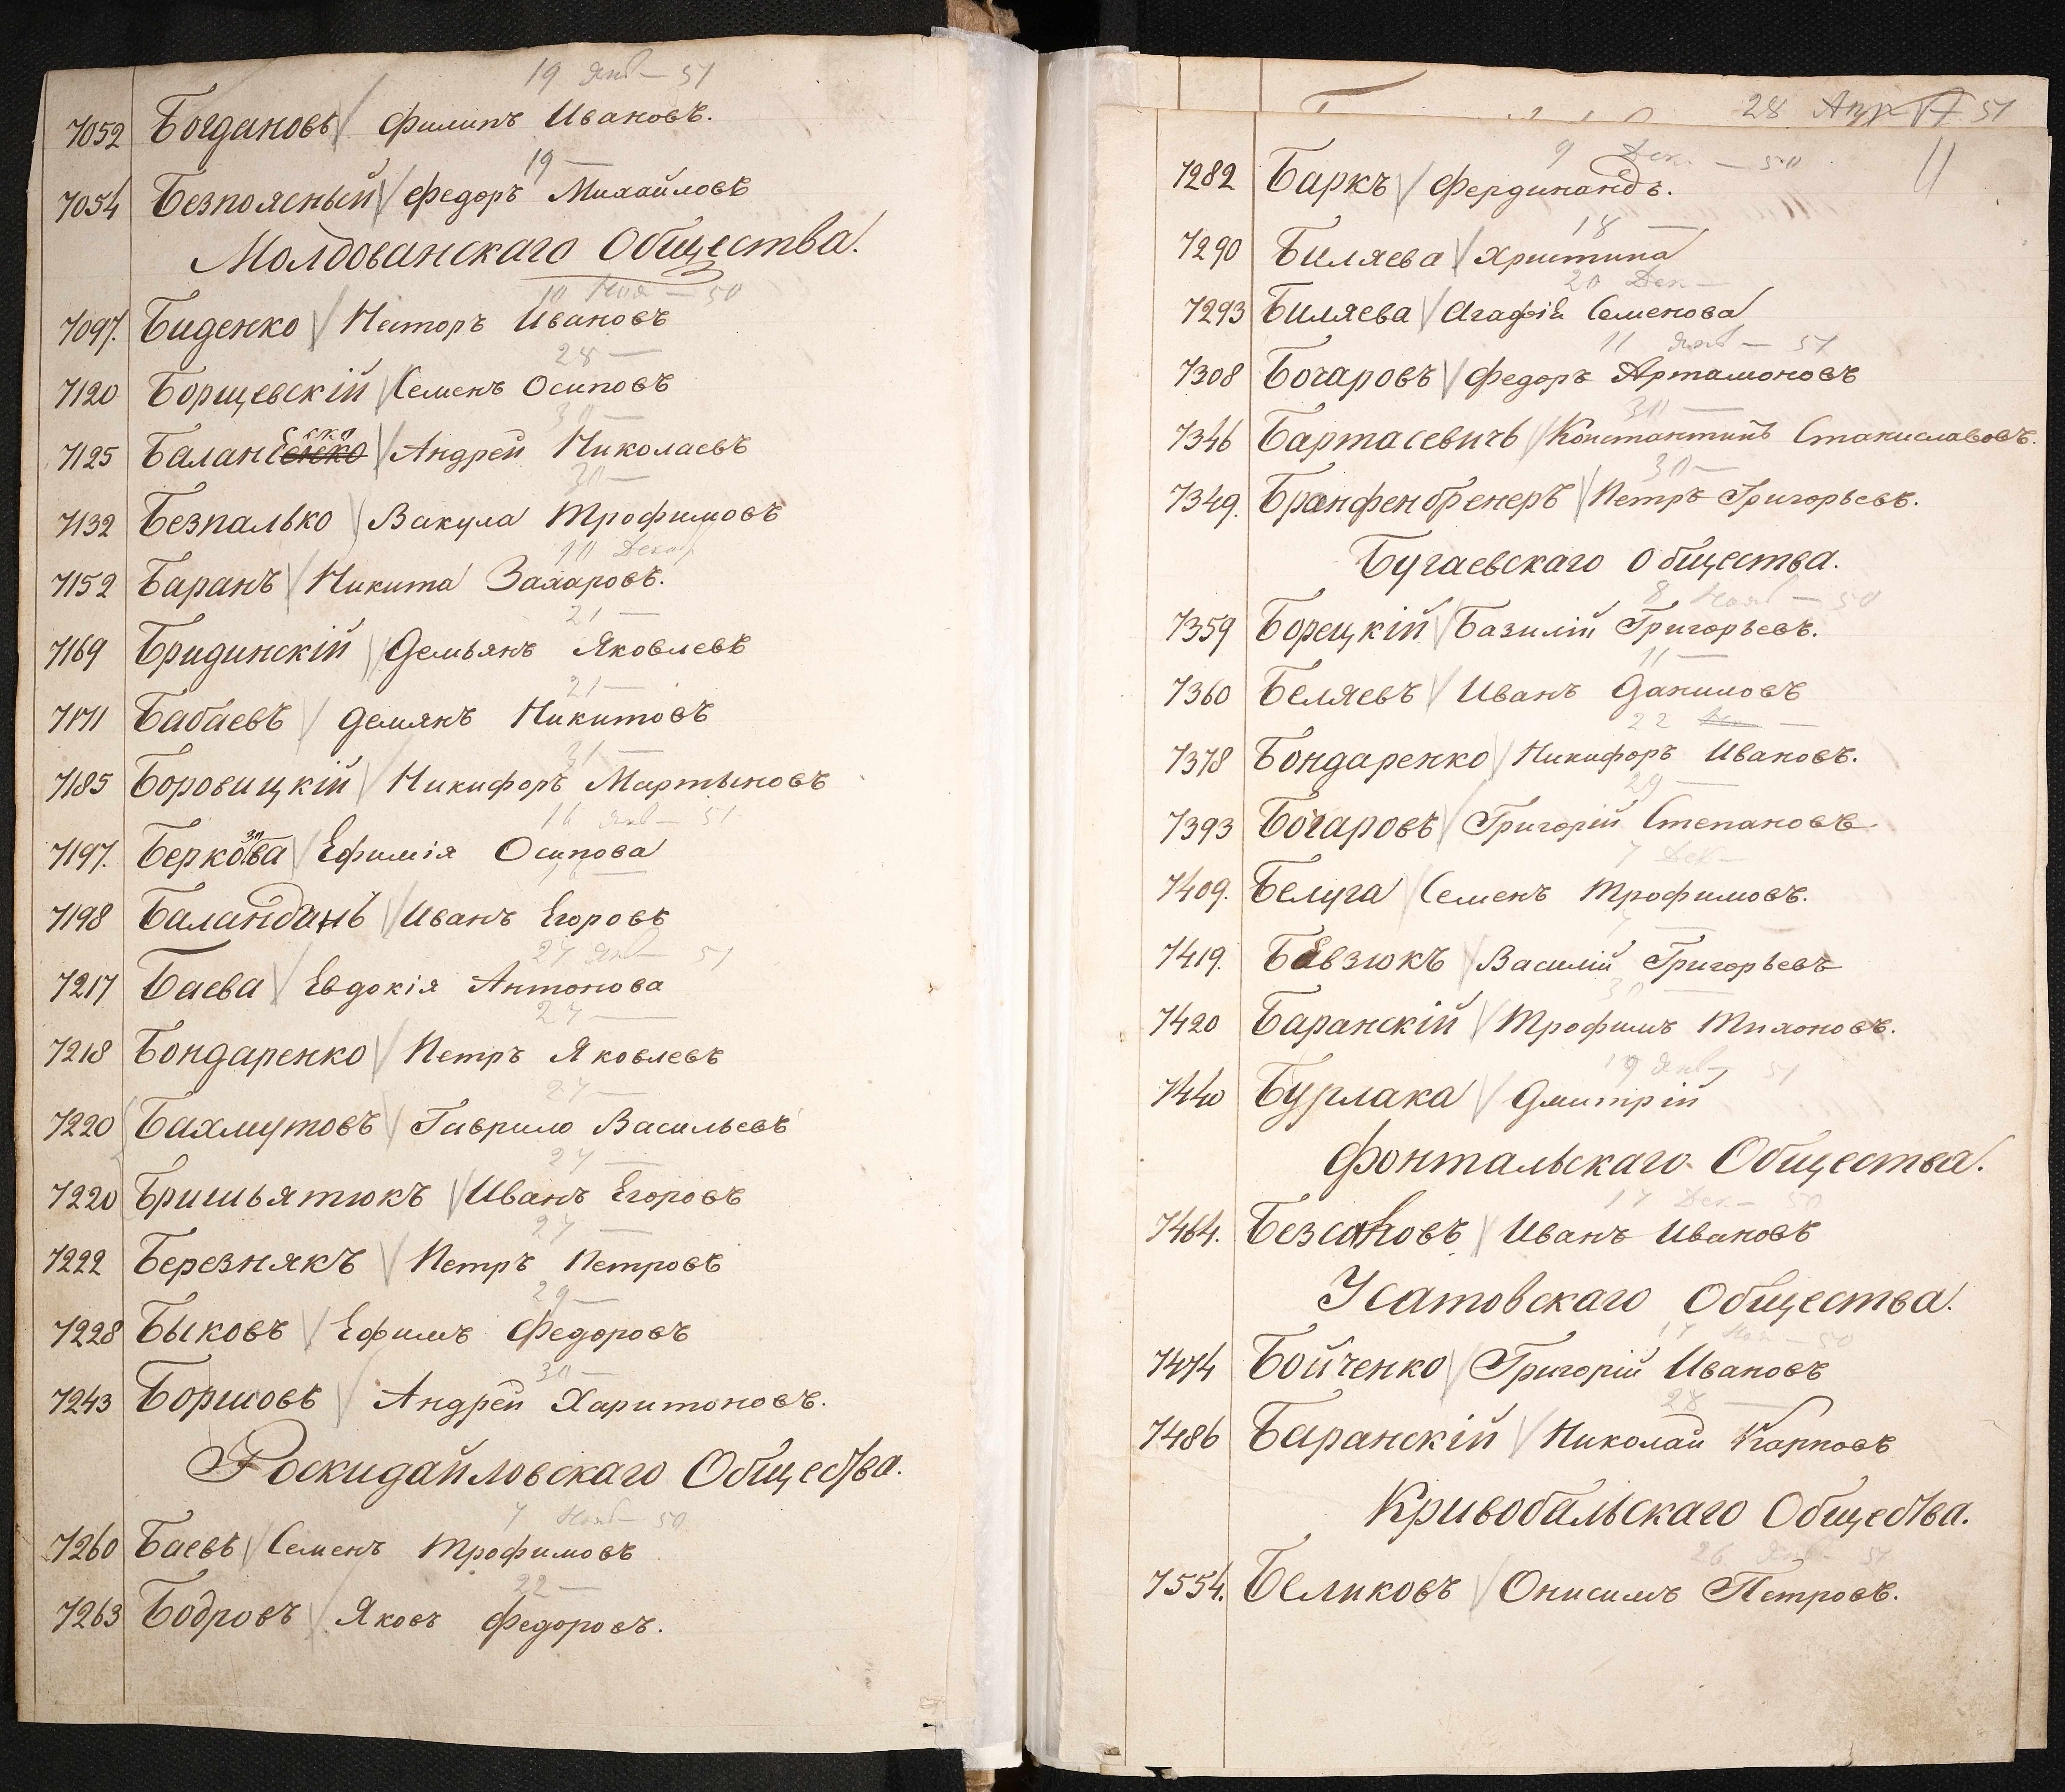 19 Янв — 51
7052 Богдановъ / Филипъ Ивановъ.
19 —
7054 Безпоясный / Федоръ Михайловъ
Молдованскаго Общества.
10 Ноя — 50
7097. Биденко / Несторъ Ивановъ
28 —
7120 Борщевскій / Семенъ Осиповъ
30 —
7125 Балан / Андрей Николаевъ
30 —
7132 Безпалько / Вакула Трофимовъ
10 Декаб
7152 Баранъ / Никита Захаровъ.
21 —
7169 Бридинскій / Демьянъ Яковлевъ
21 —
7171 Бабаевъ / Демянъ Никитовъ
31 —
7185 Боровицкій / Никифоръ Мартыновъ
16 Янв — 51
7197. Беркова / Ефимія Осипова
7198 Баландинъ / Иванъ Егоровъ
27 Янв — 51
7217 Баева / Евдокія Антонова
27 —
7218 Бондаренко / Петръ Яковлевъ
27 —
7220 Бахмутовъ / Гаврило Васильевъ
27 —
7220 Бришьятюкъ / Иванъ Егоровъ
27 —
7222 Березнякъ / Петръ Петровъ
29 —
7228 Быковъ / Ефимъ Федоровъ
30 —
7243 Боршовъ / Андрей Харитоновъ.
Роскидайловскаго Общества.
7 Нояб — 50
7260 Баевъ / Семенъ Трофимовъ
22 —
7263 Бодровъ / Яковъ Федоровъ.
28 Апр 51
11
9 Дек. — 50
7282 Баркъ / Фердинандъ.
18 —
7290 Биляева / Христина
20 Дек —
7293 Биляева / Агафія Семенова
11 Янв — 51
7308 Бочаровъ / Федоръ Артамоновъ
30 —
7346 Бартасевичъ / Константинъ Станиславовъ.
30 —
7349. Бранфенбренеръ / Петръ Григорьевъ.
Бугаевскаго Общества.
8 Нояб — 50
7359 Борецкій / Базилій Григорьевъ.
11 —
7360 Беляевъ / Иванъ Даниловъ
22 —
7378 Бондаренко / Никифоръ Ивановъ.
29 —
7393 Бочаровъ / Григорій Степановъ.
7 Дек —
7409. Белуга / Семенъ Трофимовъ.
7 —
7419. Бевзюкъ / Василій Григорьевъ
30 —
7420 Баранскій / Трофимъ Тихоновъ.
19 Янв — 51
7440 Бурлака / Дмитрій
Фонтальскаго Общества.
17 Дек — 50
7464. Безсаковъ / Иванъ Ивановъ
Усатовскаго Общества.
17 Ноя — 50
7474 Бойченко / Григорій Ивановъ
28 —
7486 Баранскій / Николай Карповъ
Кривобальскаго Общества.
26 Янв — 51
7554. Беликовъ / Онисимъ Петровъ.